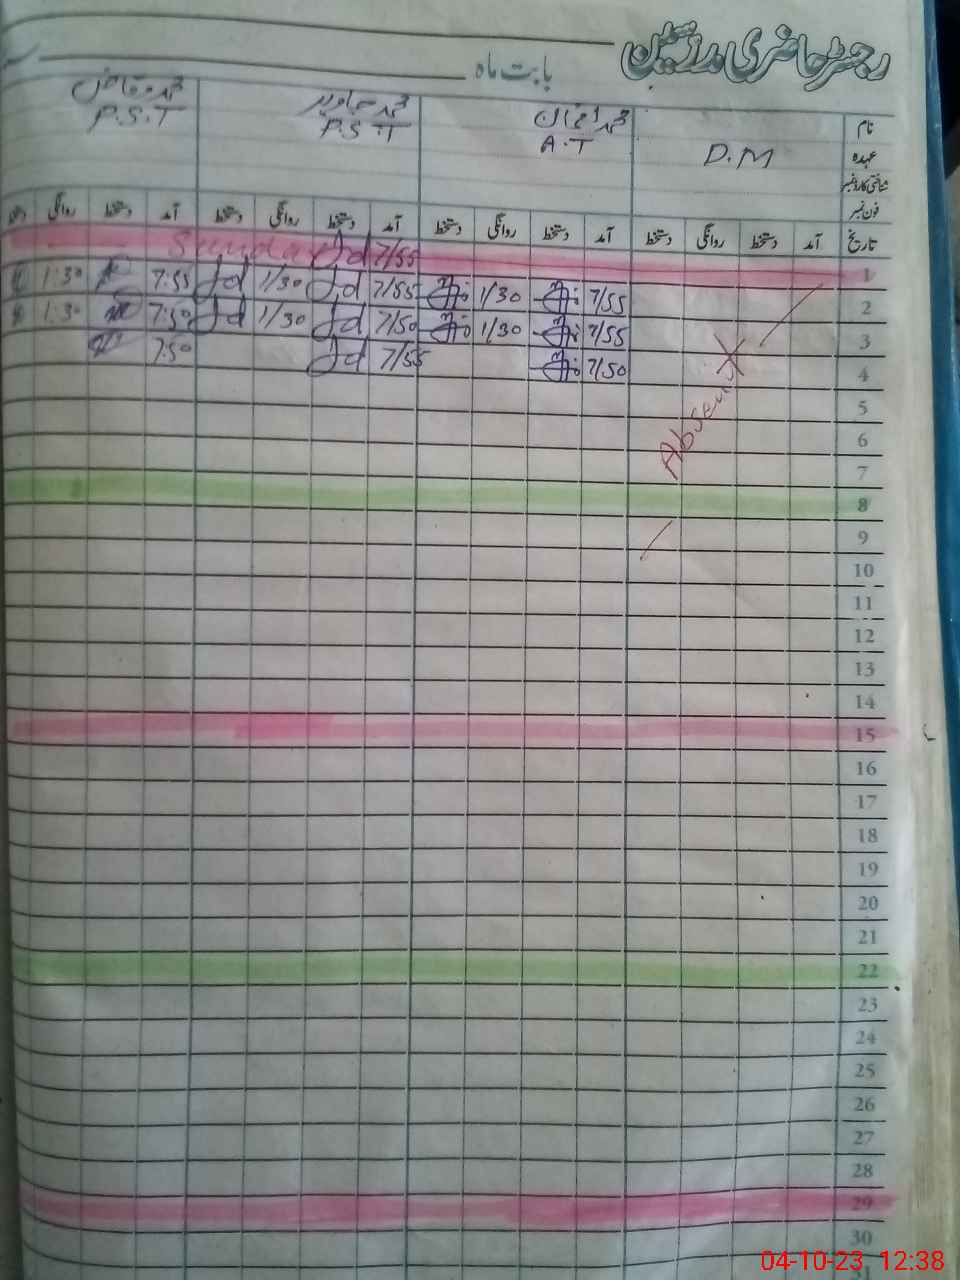 رجسٹر حاضری مدرسین
بابت ماہ
نام محمد افضال محمد
عہدہ D.M A.T P.S.T P.S.T
شناختی کارڈ نمبر
فون نمبر
تاریخ آمد دستخط روانگی دستخط آمد دستخط روانگی دستخط آمد دستخط روانگی دستخط آمد دستخط روانگی دستخط
1 7/55 Jd Sunday
2 7/55 1/30 7/55 Jd 1/30 Jd 7:55 1:30
3 7/55 1/30 7/50 Jd 1/30 Jd 7:50 1:30
4 7/50 7/55 Jd 7:50
Absent
5
6
7
8
9
10
11
12
13
14
15
16
17
18
19
20
21
22
23
24
25
26
27
28
29
30
31
04-10-23 12:38